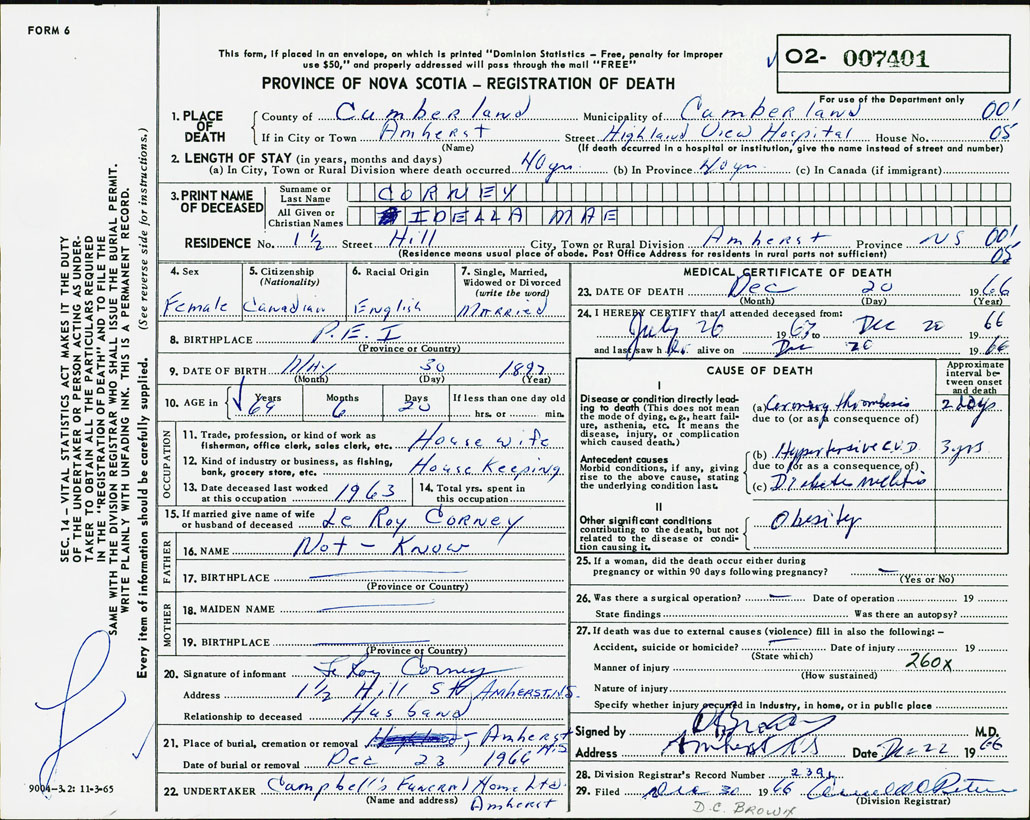 FORM 6
This form, if placed in an envelope, on which is printed "Dominion Statistics – Free, penalty for improper
use $50," and properly addressed will pass through the mail "FREE"
O2- 007401
PROVINCE OF NOVA SCOTIA – REGISTRATION OF DEATH
For use of the Department only
1. PLACE OF DEATH County of Cumberland Municipality of Cumberland 00'
If in City or Town Amherst Street Highland View Hospital House No. 05
(Name) (If death occurred in a hospital or institution, give the name instead of street and number)
2. LENGTH OF STAY (in years, months and days)
(a) In City, Town or Rural Division where death occurred 40 yrs. (b) In Province 40 yrs. (c) In Canada (if immigrant)
3. PRINT NAME OF DECEASED Surname or Last Name CORNEY
All Given or Christian Names IDELLA MAE
RESIDENCE No. 1 1/2 Street Hill City, Town or Rural Division Amherst Province NS 00'
(Residence means usual place of abode. Post Office Address for residents in rural parts not sufficient) 05
4. Sex Female
5. Citizenship (Nationality) Canadian
6. Racial Origin English
7. Single, Married, Widowed or Divorced (write the word) MARRIED
8. BIRTHPLACE P.E.I
(Province or Country)
9. DATE OF BIRTH MAY 30 1897
(Month) (Day) (Year)
10. AGE in Years 69 Months 6 Days 20 If less than one day old hrs. or min.
OCCUPATION
11. Trade, profession, or kind of work as fisherman, office clerk, sales clerk, etc. House wife
12. Kind of industry or business, as fishing, bank, grocery store, etc. House Keeping
13. Date deceased last worked at this occupation 1963
14. Total yrs. spent in this occupation
15. If married give name of wife or husband of deceased Le Roy Corney
FATHER
16. NAME Not – Know
17. BIRTHPLACE
(Province or Country)
MOTHER
18. MAIDEN NAME
19. BIRTHPLACE
(Province or Country)
20. Signature of informant Le Roy Corney
Address 1 1/2 Hill St AMHERST, N.S.
Relationship to deceased Husband
21. Place of burial, cremation or removal Amherst N.S
Date of burial or removal Dec 23 1966
22. UNDERTAKER Campbell's Funeral Home Ltd.
(Name and address) Amherst
MEDICAL CERTIFICATE OF DEATH
23. DATE OF DEATH Dec 20 1966
(Month) (Day) (Year)
24. I HEREBY CERTIFY that I attended deceased from:
July 26 1963 to Dec 20 66
and last saw h alive on Dec 20 1966
CAUSE OF DEATH
Approximate interval between onset and death
I
Disease or condition directly leading to death (This does not mean the mode of dying, e.g., heart failure, asthenia, etc. It means the disease, injury, or complication which caused death.)
(a) Coronary thrombosis 2 days
due to (or as a consequence of)
Antecedent causes
Morbid conditions, if any, giving rise to the above cause, stating the underlying condition last.
(b) Hypertensive C.V.D. 3 yrs
due to (or as a consequence of)
(c) Diabetes mellitus
II
Other significant conditions contributing to the death, but not related to the disease or condition causing it.
Obesity
25. If a woman, did the death occur either during
pregnancy or within 90 days following pregnancy? –
(Yes or No)
26. Was there a surgical operation? – Date of operation 19
State findings Was there an autopsy?
27. If death was due to external causes (violence) fill in also the following: –
Accident, suicide or homicide? Date of injury 19
(State which)
Manner of injury 260x
(How sustained)
Nature of injury
Specify whether injury occurred in Industry, in home, or in public place
Signed by M.D.
Address Amherst N.S Date Dec 22 1966
28. Division Registrar's Record Number 239
29. Filed Dec 30 1966
(Division Registrar)
D.C. BROWN
SEC. 14 – VITAL STATISTICS ACT MAKES IT THE DUTY
OF THE UNDERTAKER OR PERSON ACTING AS UNDER-
TAKER TO OBTAIN ALL THE PARTICULARS REQUIRED
IN THE "REGISTRATION OF DEATH" AND TO FILE THE
SAME WITH THE DIVISION REGISTRAR WHO SHALL ISSUE THE BURIAL PERMIT.
WRITE PLAINLY WITH UNFADING INK. THIS IS A PERMANENT RECORD.
Every item of information should be carefully supplied. (See reverse side for instructions.)
9004-3.2: 11-3-65